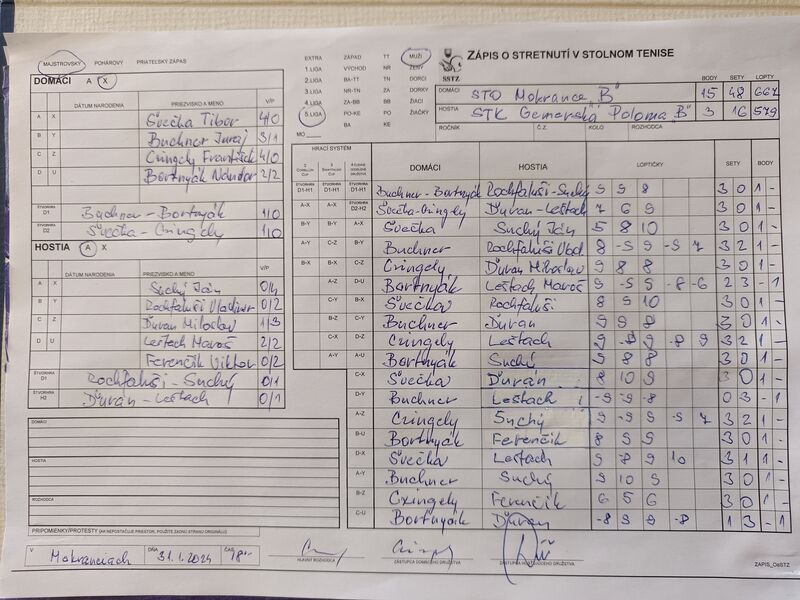 MAJSTROVSKÝ POHÁROVÝ PRIATEĽSKÝ ZÁPAS
DOMÁCI A X
DÁTUM NARODENIA PRIEZVISKO A MENO V/P
A X Švečka Tibor 4/0
B Y Buchner Juraj 3/1
C Z Cringely František 4/0
D U Bortnyák Nándor 2/2
ŠTVORHRA D1 Buchner - Bortnyák 1/0
ŠTVORHRA D2 Švečka - Cringely 1/0
HOSTIA A X
DÁTUM NARODENIA PRIEZVISKO A MENO V/P
A X Suchý Ján 0/4
B Y Rochfaluši Vladimír 0/2
C Z Ďuran Miloslav 1/3
D U Leštach Maroš 2/2
Ferenčik Viktor 0/2
ŠTVORHRA D1 Rochfaluši - Suchý 0/1
ŠTVORHRA H2 Ďurán - Leštach 0/1
DOMÁCI
HOSTIA
ROZHODCA
PRIPOMIENKY/PROTESTY (AK NEPOSTAČUJE PRIESTOR, POUŽITE ZADNÚ STRANU ORIGINÁLU)
V Mokranciach DŇA 31.1.2024 ČAS 18
HLAVNÝ ROZHODCA ZÁSTUPCA DOMÁCEHO DRUŽSTVA ZÁSTUPCA HOSŤUJÚCEHO DRUŽSTVA
ZAPIS_OsSTZ
EXTRA ZÁPAD TT MUŽI
1.LIGA VÝCHOD NR ŽENY
2.LIGA BA-TT TN DORCI
3.LIGA NR-TN ZA DORKY
4.LIGA ZA-BB BB ŽIACI
5.LIGA PO-KE PO ŽIAČKY
MO BA KE
SSTZ
ZÁPIS O STRETNUTÍ V STOLNOM TENISE
BODY SETY LOPTY
DOMÁCI STO Mokrance "B" 15 48 667
HOSTIA STK Gemerská Poloma "B" 3 16 579
ROČNÍK Č.Z. KOLO ROZHODCA
HRACÍ SYSTÉM DOMÁCI HOSTIA LOPTIČKY SETY BODY
ŠTVORHRA D1-H1 D1-H1 D1-H1 Buchner - Bortnyák Rochfaluši - Suchý 9 9 8 3 0 1 -
A-X A-X D2-H2 Švečka - Cringely Ďuran - Leštach 7 6 9 3 0 1 -
B-Y B-Y A-X Švečka Suchý Ján 5 8 10 3 0 1 -
A-Y C-Z B-Y Buchner Rochfaluši Vlad. 8 -9 9 -9 7 3 2 1 -
B-X B-X C-Z Cringely Ďuran Miloslav 9 8 8 3 0 1 -
A-Z D-U Bortnyák Leštach Maroš 9 -5 9 -8 -6 2 3 - 1
C-Y B-X Švečka Rochfaluši 8 9 10 3 0 1 -
B-Z C-Y Buchner Ďuran 9 9 8 3 0 1 -
C-X D-Z Cringely Leštach 9 -8 9 -8 9 3 2 1 -
A-Y A-U Bortnyák Suchý 9 8 8 3 0 1 -
C-X Švečka Ďurán 8 10 9 3 0 1 -
D-Y Buchner Leštach -9 -9 -8 0 3 - 1
A-Z Cringely Suchý 9 -9 9 -9 7 3 2 1 -
B-U Bortnyák Ferenčik 8 9 9 3 0 1 -
D-X Švečka Leštach 9 -8 9 10 3 1 1 -
A-Y Buchner Suchý 9 10 9 3 0 1 -
B-Z Cringely Ferenčik 6 5 6 3 0 1 -
C-U Bortnyák Ďuran -8 9 -9 -8 1 3 - 1